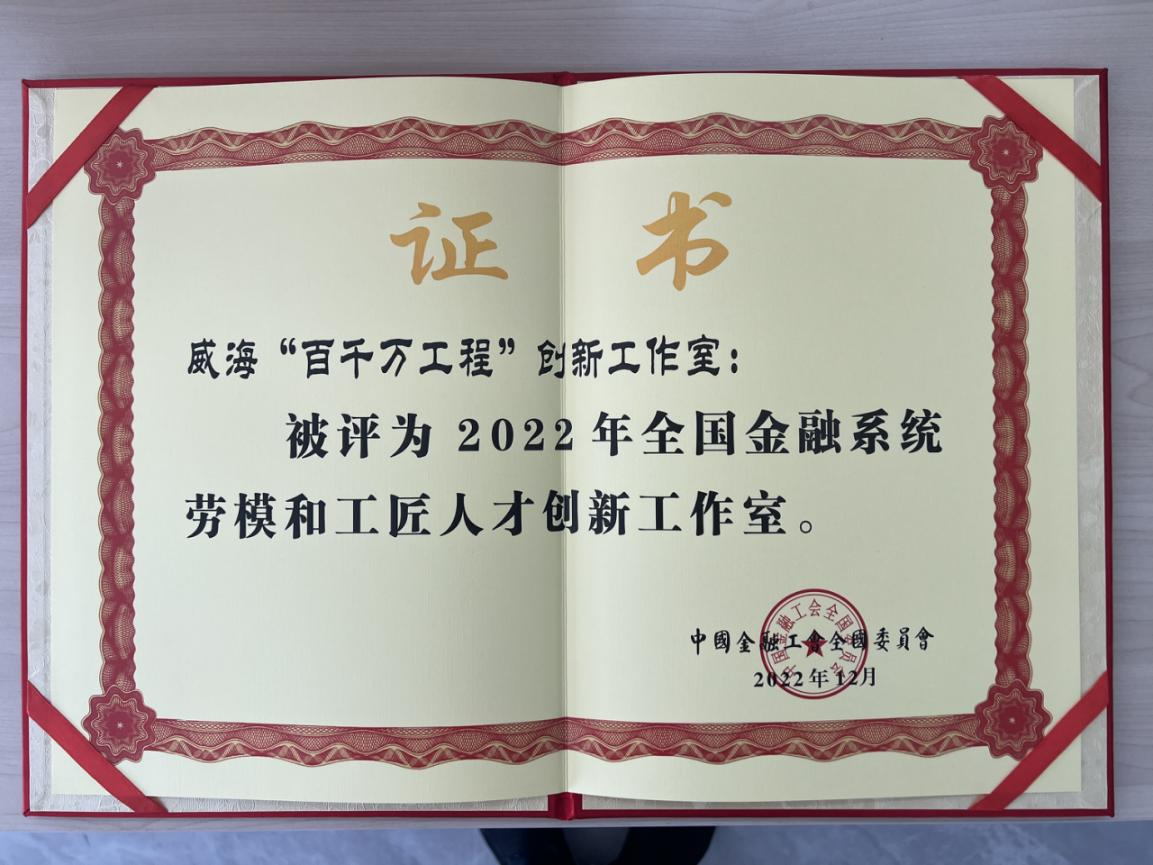 证书
威海“百千万工程”创新工作室：
被评为 2022 年全国金融系统
劳模和工匠人才创新工作室。
中國金融工會全國委員會
2022年12月
中国金融工会全国委员会